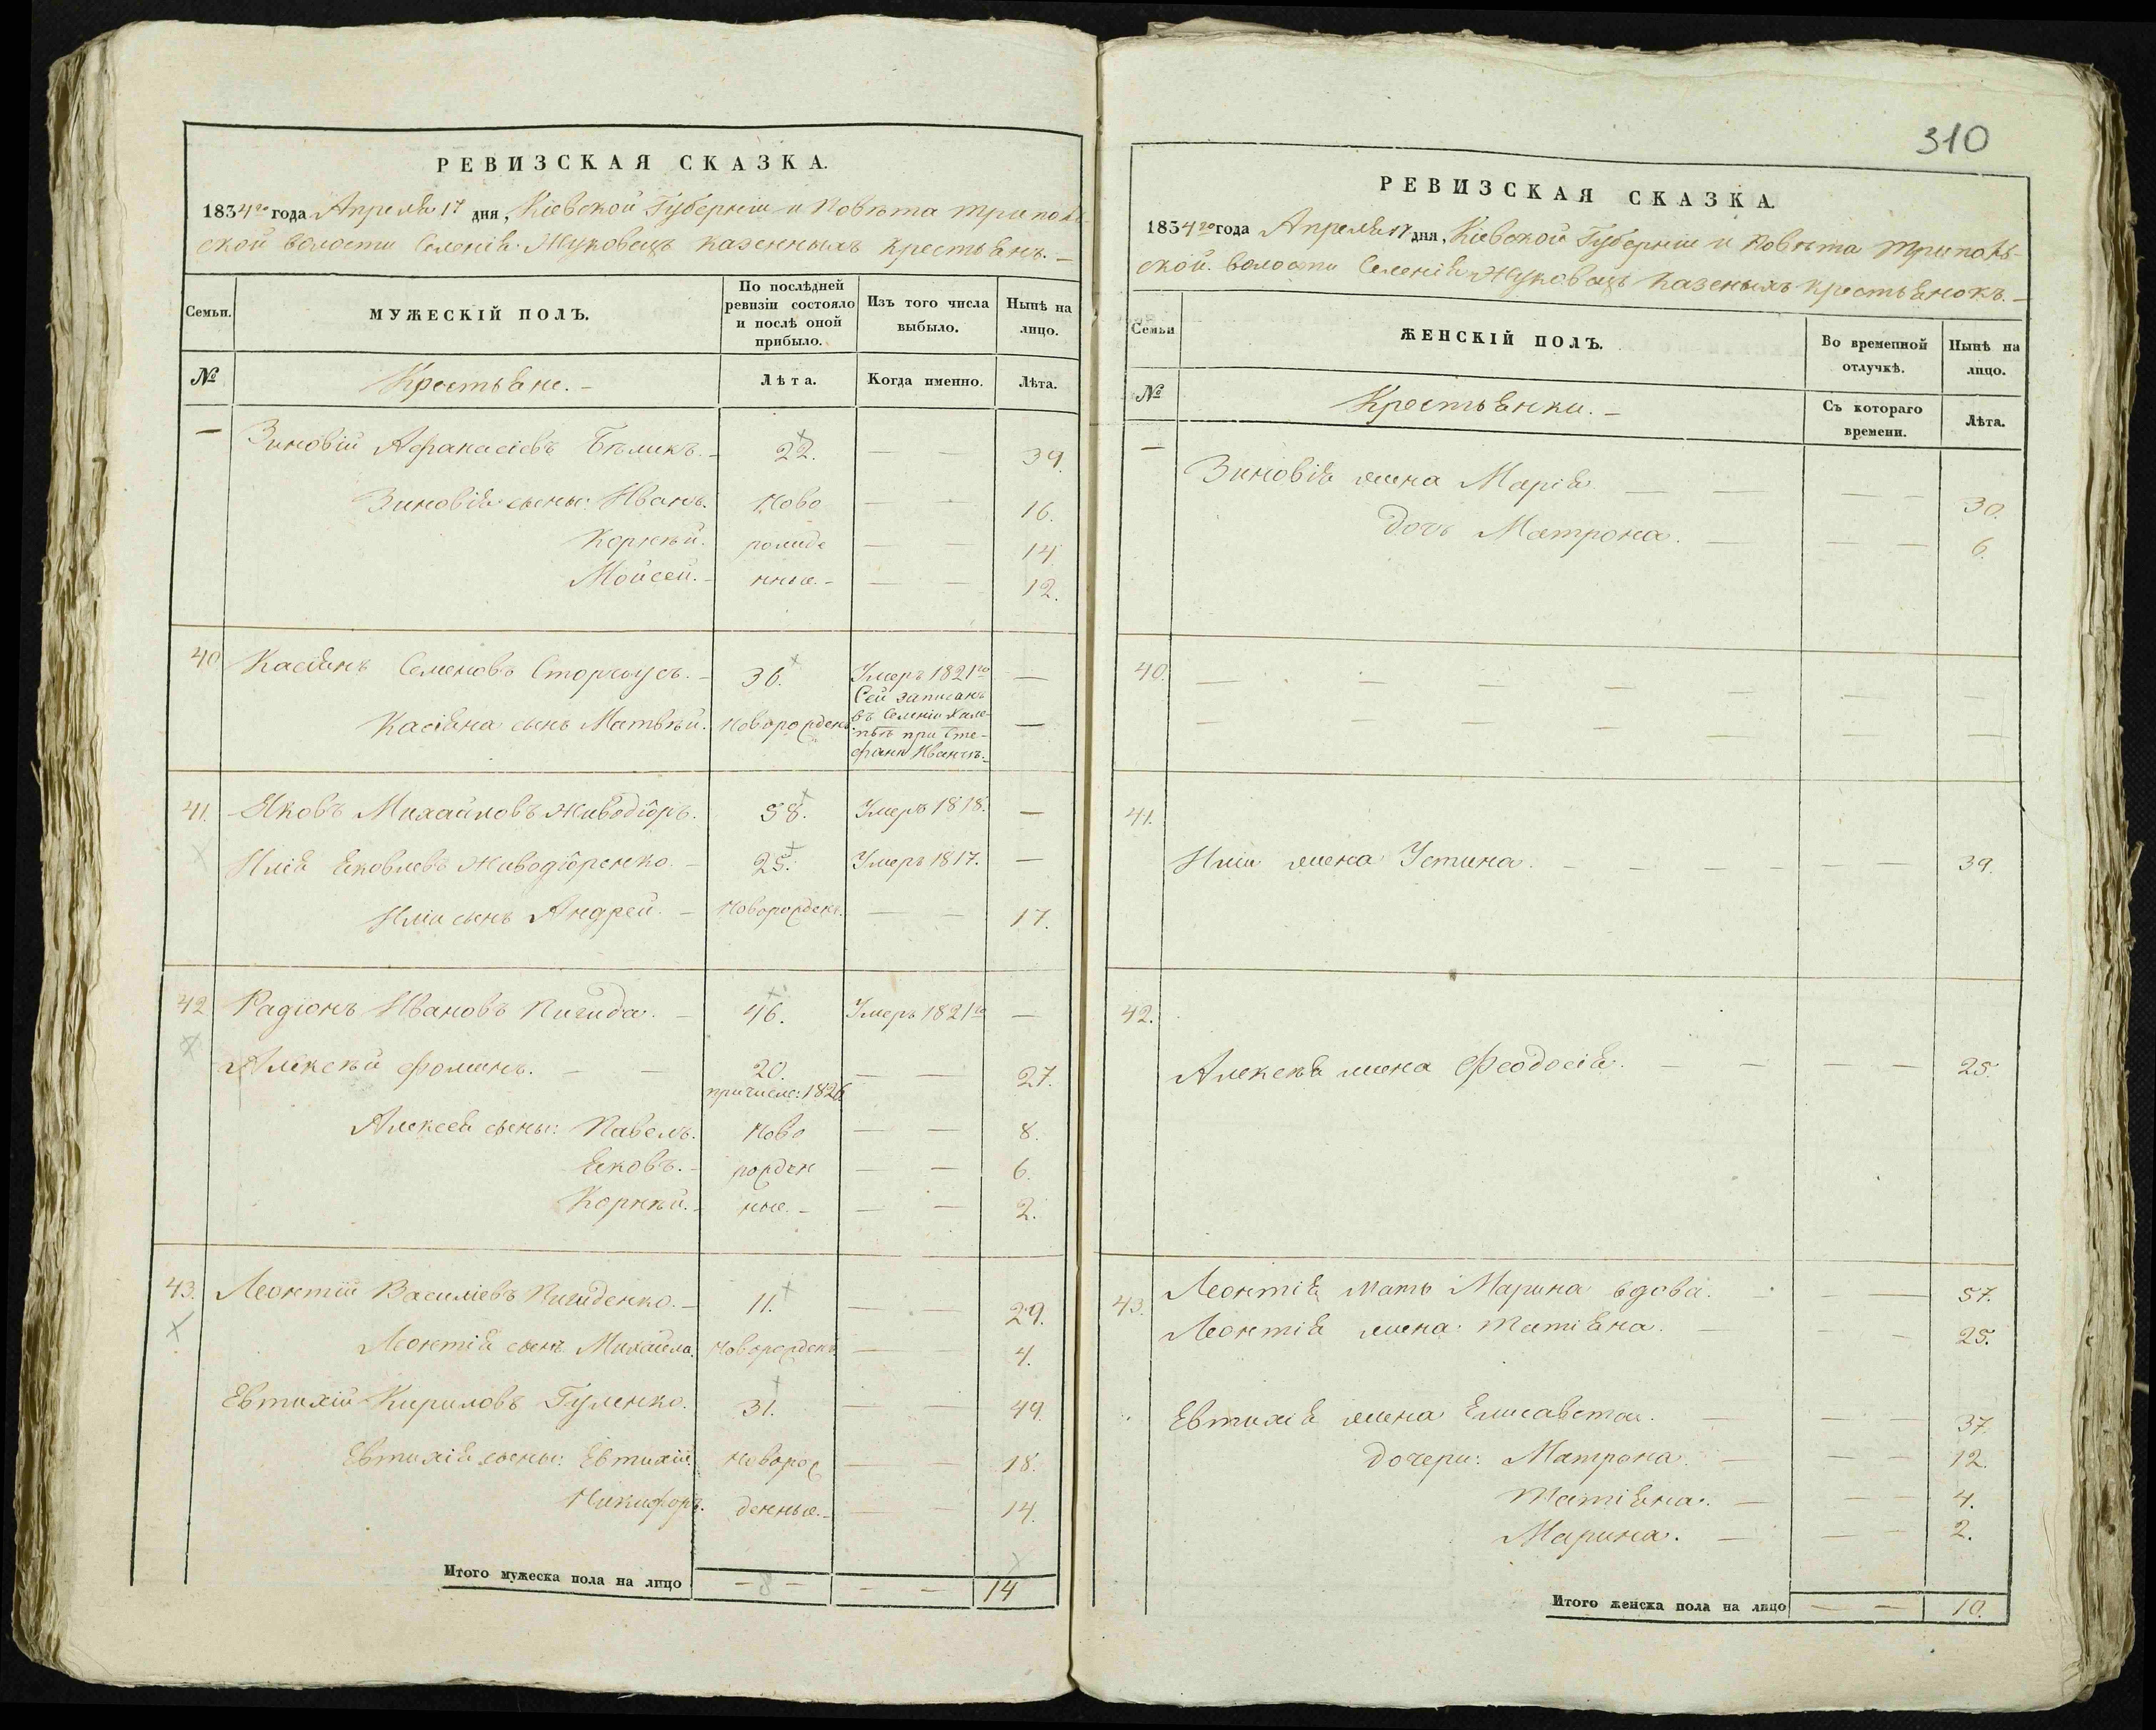 РЕВИЗСКАЯ СКАЗКА.
1834го года Апреля 17 дня, Кіевской Губерніи и Повѣта Триполь
ской волости Селенія Жуковецъ казенныхъ крестьянъ. —
Семьи. МУЖЕСКІЙ ПОЛЪ. По послѣдней ревизіи состояло и послѣ оной прибыло. Изъ того числа выбыло. Нынѣ на лицо.
№ Крестьяне. — Лѣта. Когда именно. Лѣта.
— Зиновій Афанасіевъ Бѣликъ. — 22. — — 39.
Зиновія сыны: Иванъ. Ново — — 16.
Корнѣй. рожде — — 14
Мойсей. — нные. — — — 12.
40 Касіянъ Семеновъ Сторчоусъ. — 36. Умеръ 1821го —
Касіяна сынъ Матвѣй. Новорожденъ. Сей записанъ —
въ Селеніи Хале-
пьѣ при Сте-
фанѣ Иванчѣ. —
41. Яковъ Михайловъ Живодіоръ. 58. Умеръ 1818. —
Илія Яковлевъ Живодіоренко. — 25. Умеръ 1817. —
Иліи сынъ Андрей. — Новорожденъ. — — 17.
42 Радіонъ Ивановъ Пигида. — 46. Умеръ 1821го —
Алексѣй Фоминъ. — — 20. — — 27.
причисле: 1826
Алексея сыны: Павелъ. Ново — — 8.
Яковъ. — рожден — — 6.
Корнѣй. — ные. — — — 2.
43. Леонтій Василіевъ Пигиденко. — 11. — — 29.
Леонтія сынъ Михайла. Новорожденъ. — — 4.
Евтихій Кириловъ Гуленко. 31. — — 49.
Евтихія сыны: Евтихій. Новорож — — 18.
Никифоръ. денные. — — — 14.
Итого мужеска пола на лицо — 8 — — — 14
310
РЕВИЗСКАЯ СКАЗКА.
1834го года Апреля 17 дня, Кіевской Губерніи и Повѣта Триполь-
ской волости Селенія Жуковецъ казеныхъ крестьянокъ. —
Семьи ЖЕНСКІЙ ПОЛЪ. Во временной отлучкѣ. Нынѣ на лицо.
№ Крестьянки. — Съ котораго времени. Лѣта.
— Зиновія жена Марія — — — — 30.
дочь Матрона. — — — 6.
40. — — — — — — — —
— — — — — — —
41.
Иліи жена Устина. — — — — — — 39.
42.
Алексѣя жена Феодосія. — — — — 25.
43. Леонтія мать Марина вдова. — — — 57.
Леонтія жена Татіяна. — — — 25.
Евтихія жена Елисавета. — — — 37.
дочери: Матрона. — — — 12.
Татіяна. — — — 4.
Марина. — — — 2.
Итого женска пола на лицо — — 10.